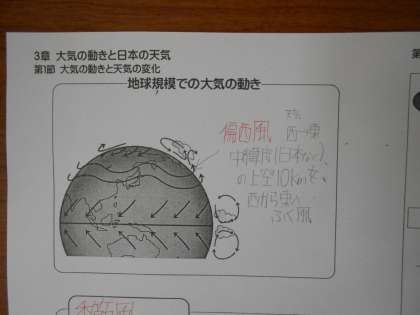 3章 大気の動きと日本の天気
第1節 大気の動きと天気の変化
地球規模での大気の動き
偏西風
天気
西→東
中緯度(日本など)
の上空10kmを、
西から東へ
ふく風
第